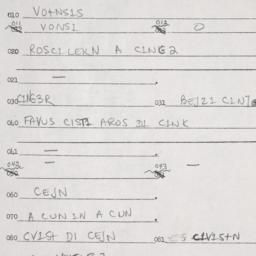 010 VOTNSIS
011 VONSI 012 O
020 ROSCILEKN A CING2
021 —
030 CING3R 031 BEJZI CINJ
040 FAVUS CISTI AROS DI CINK
041 —
042 — 043 —
060 CEJN
070 A CUN IN A CUN
080 CVIST DI CEJN 081 ES CIVISTN